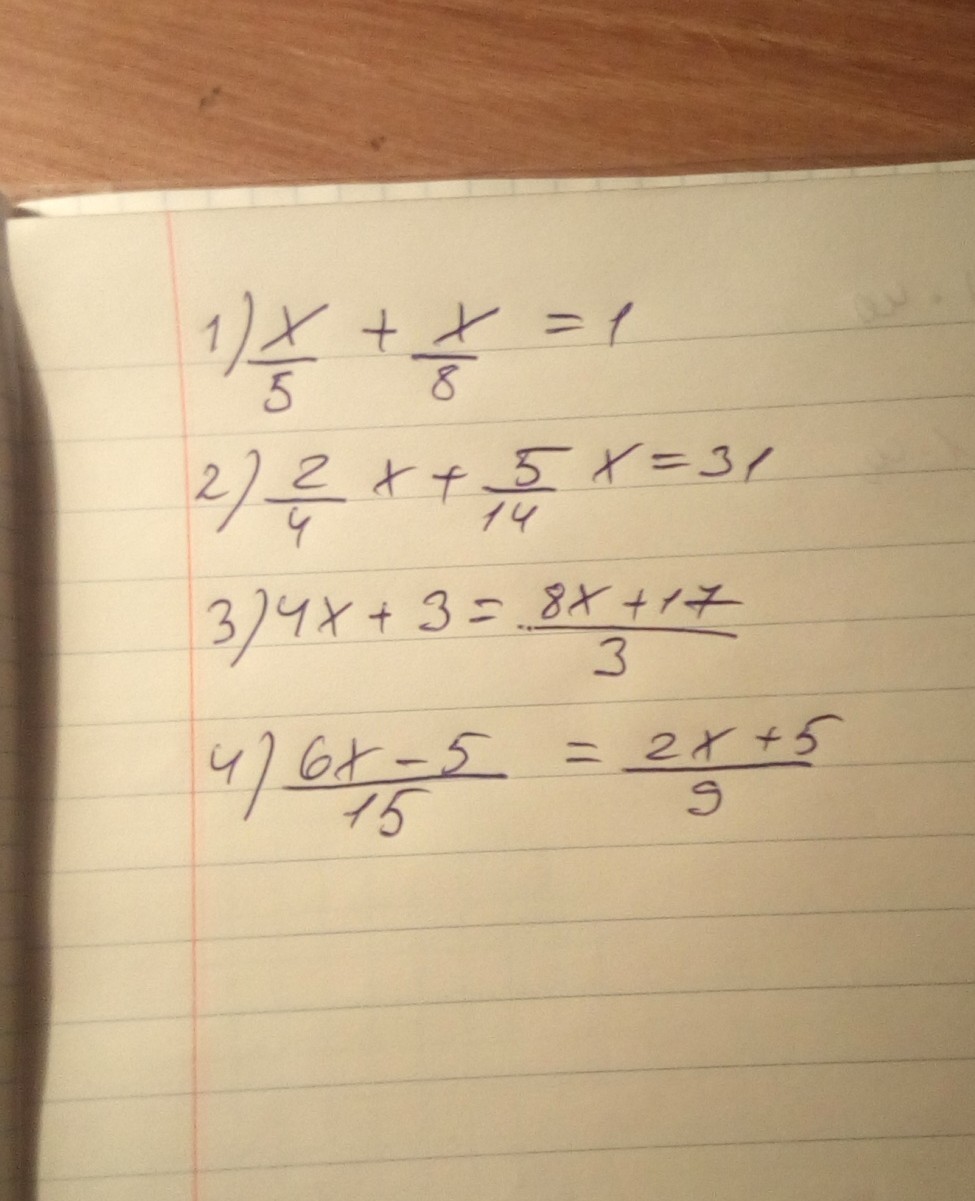 1) x/5 + x/8 = 1
2) 2/4 x + 5/14 x = 31
3) 4x + 3 = 8x + 17/3
4) 6x - 5/15 = 2x + 5/9